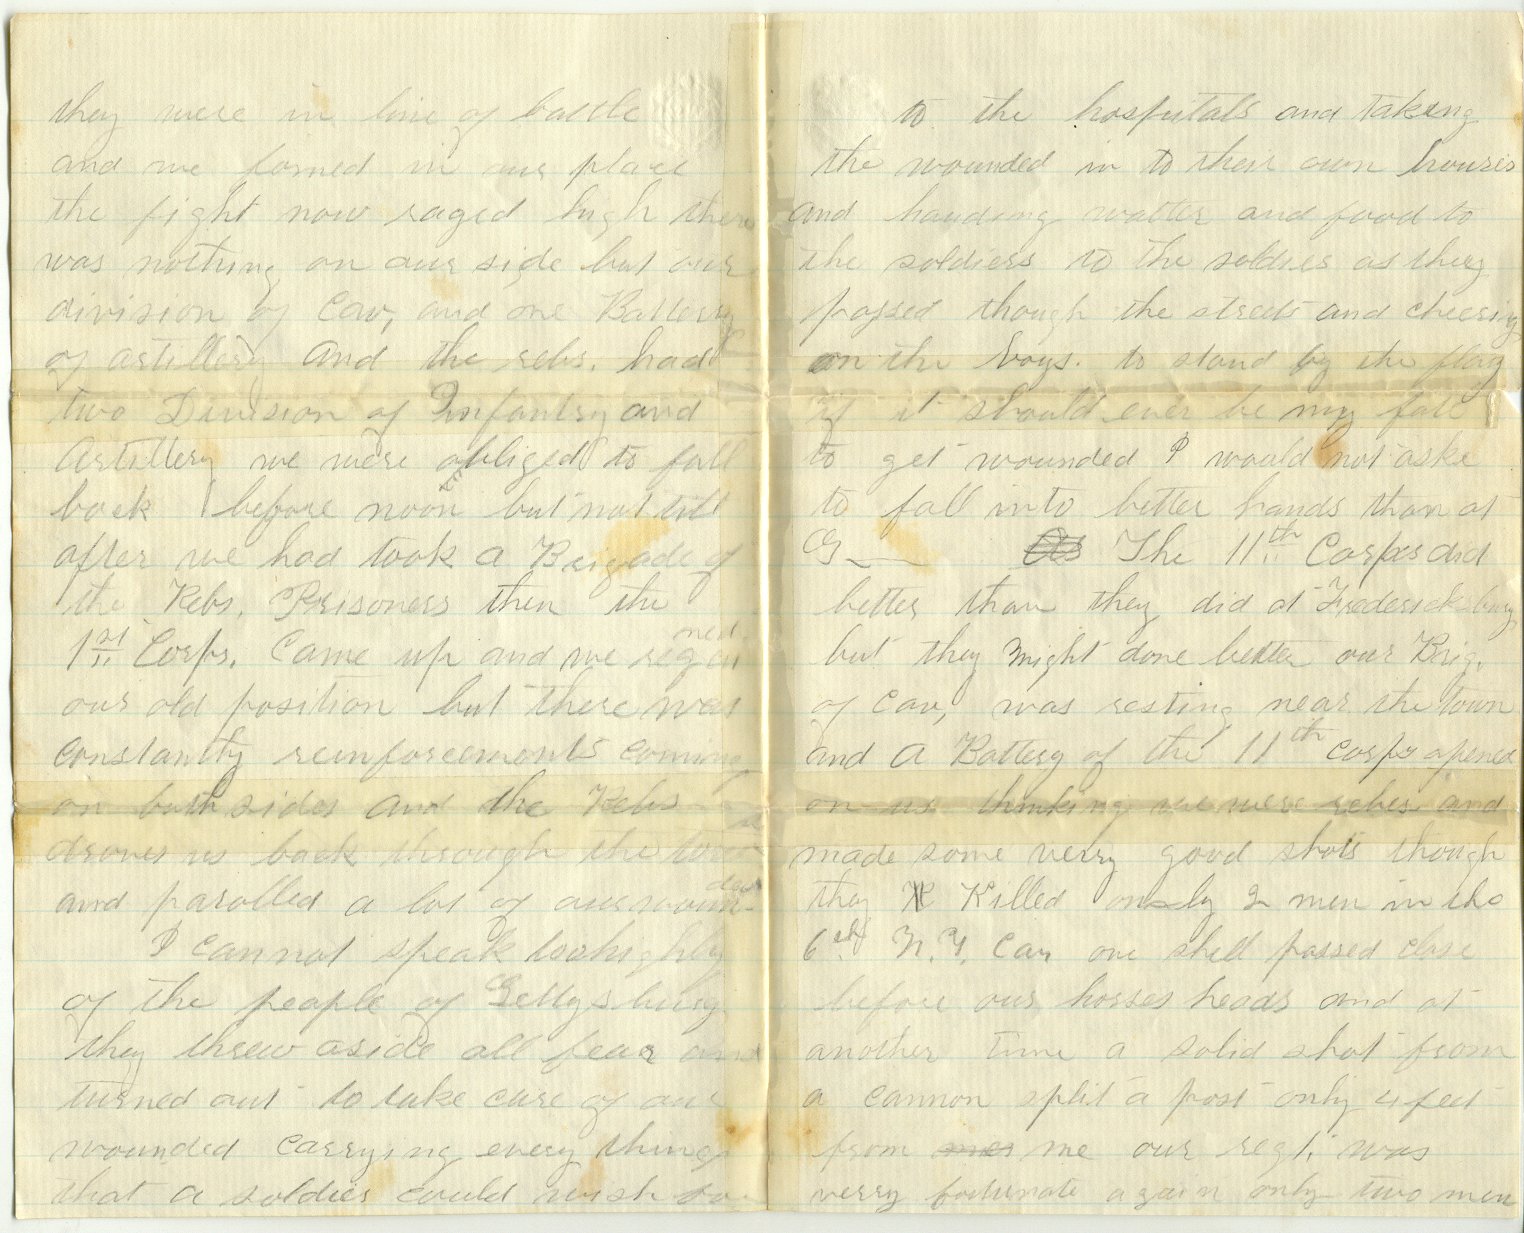 they were in line of battle
and we formed in our place
the fight now raged high there
was nothing on our side but our
division of Cav, and one Battery
of artillery and the rebs. had
two Division of Infantry and
Artillery we were obliged to fall
back before noon but not till
after we had took a Brigade of
the Rebs. Prisoners then the
1st Corps. Came up and we regained
our old position but there was
constantly reinforcements coming
on both sides and the Rebs
droves us back through the town
and parolled a lot of our wounded
I cannot speak to highly
of the people of Gettysburg
they threw aside all fear and
turned out to take care of our
wounded carrying every thing
that a soldier could wish
to the hospitals and takeing
the wounded in to their own houses
and handing watter and food to
the soldiers to the soldies as they
passed though the streets and cheering
on the boys. to stand by the flag
if it should ever be my fate
to get wounded I would not aske
to fall into better hands than at
G— The 11th Corps did
better than they did at Frederickburg
but they might done better our Brig.
of Cav, was resting near the town
and a Battery of the 11th Corps opened
on us thinking we were rebes and
made some verry good shots though
they Killed only 2 men in the
6th N.Y. Cav one shell passed close
before our horses heads and at
another time a solid shot from
a cannon split a post only 4 feet
from me our regt. was
verry fortunate again only two men